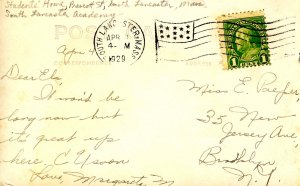 Students' Home, Prescott St, South Lancaster, Mass.
South Lancaster Academy
SOUTH LANCASTER, MASS.
APR
4-
M
1929
POST
Apr 4
Dear Els,
It won't be
long now but
it's great up
here.
Love, Margaret M
1 1
Miss E. Paefer
35 New
Jersey Ave,
Brooklyn
N.Y.